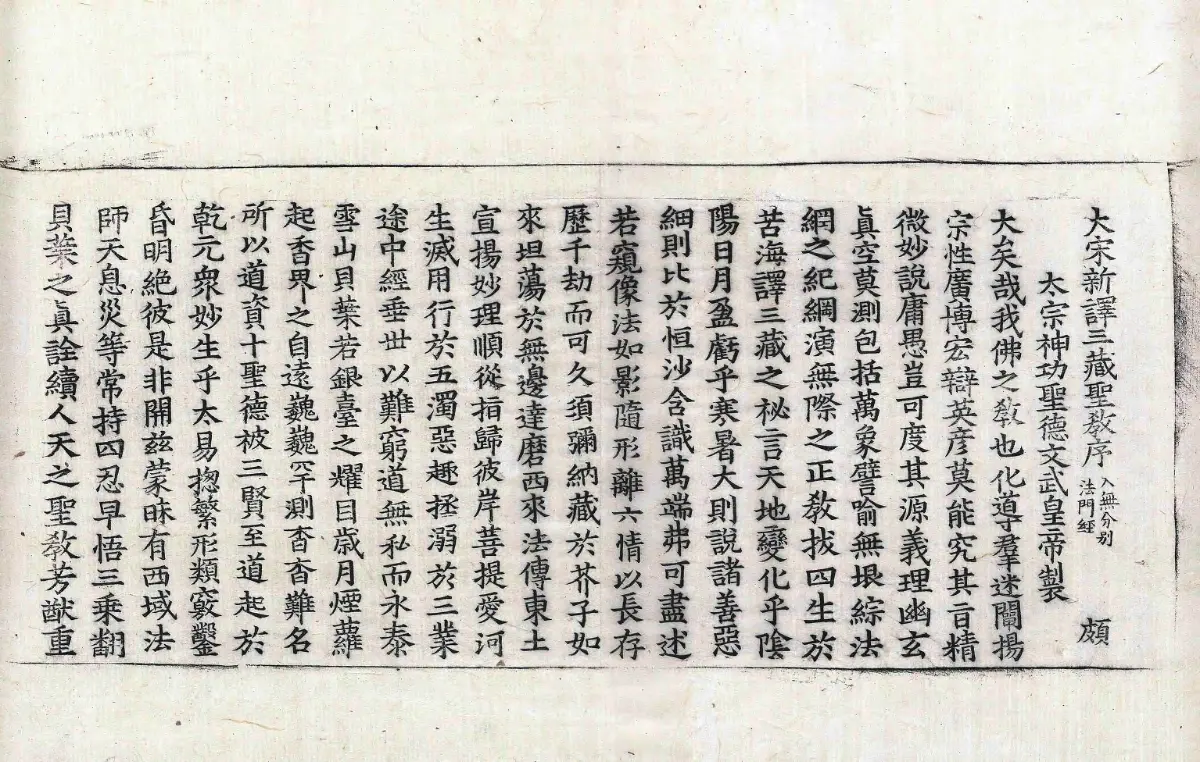 大宋新譯三藏聖教序 入無分別法門經 頗
太宗神功聖德文武皇帝製
大矣哉我佛之教也化導羣迷闡揚
宗性廣博宏辯英彥莫能究其旨精
微妙說庸愚豈可度其源義理幽玄
眞空莫測包括萬象譬喻無垠綜法
網之紀綱演無際之正敎拔四生於
苦海譯三藏之祕言天地變化乎陰
陽日月盈虧乎寒暑大則說諸善惡
細則比於恒沙含識萬端弗可盡述
若窺像法如影隨形離六情以長存
歷千劫而可久須彌納藏於芥子如
來坦蕩於無邊達磨西來法傳東土
宣揚妙理順從指歸彼岸菩提愛河
生滅用行於五濁惡趣拯溺於三業
途中經垂世以難窮道無私而永泰
雪山貝葉若銀臺之耀目歲月煙蘿
起香界之自遠巍巍罕測杳杳難名
所以道資十聖德被三賢至道起於
乾元衆妙生乎太易揔繁形類竅鑿
昏明絶彼是非開兹蒙昧有西域法
師天息災等常持四忍早悟三乘翻
貝葉之眞詮續人天之聖敎芳猷重